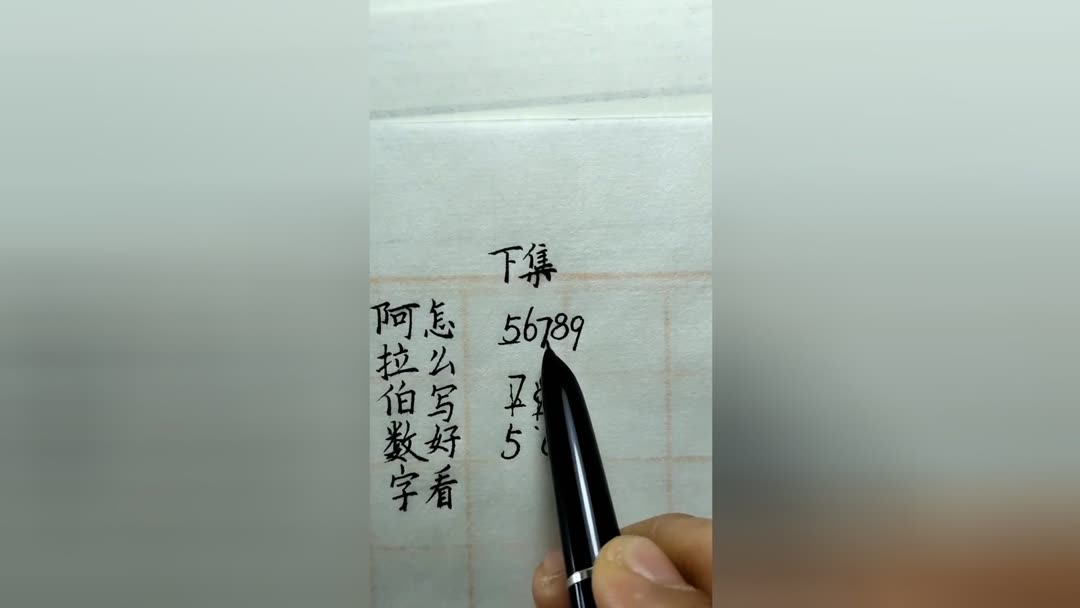 下集
怎么写好看
阿拉伯数字
56789
5